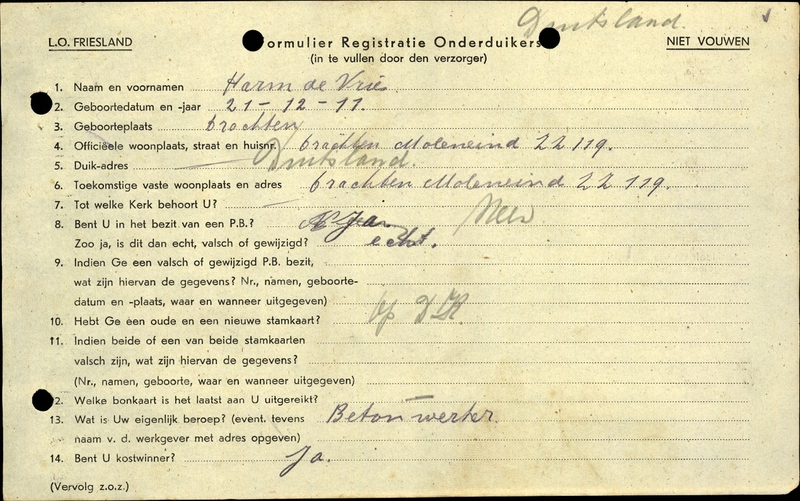 Duitsland.
L.O. FRIESLAND
Formulier Registratie Onderduikers
NIET VOUWEN
(in te vullen door den verzorger)
1. Naam en voornamen Harm de Vries
2. Geboortedatum en -jaar 21-12-11.
3. Geboorteplaats Drachten
4. Officiële woonplaats, straat en huisnr. Drachten Moleneind ZZ 119.
5. Duik-adres Duitsland.
6. Toekomstige vaste woonplaats en adres Drachten Moleneind ZZ 119.
7. Tot welke Kerk behoort U?
8. Bent U in het bezit van een P.B.? Ja
Zoo ja, is dit dan echt, valsch of gewijzigd? echt.
9. Indien Ge een valsch of gewijzigd P.B. bezit,
wat zijn hiervan de gegevens? Nr., namen, geboorte-
datum en -plaats, waar en wanneer uitgegeven)
10. Hebt Ge een oude en een nieuwe stamkaart? op D.K.
11. Indien beide of een van beide stamkaarten
valsch zijn, wat zijn hiervan de gegevens?
(Nr., namen, geboorte, waar en wanneer uitgegeven)
2. Welke bonkaart is het laatst aan U uitgereikt? —
13. Wat is Uw eigenlijk beroep? (event. tevens Betonwerker
naam v. d. werkgever met adres opgeven)
14. Bent U kostwinner? Ja.
(Vervolg z.o.z.)